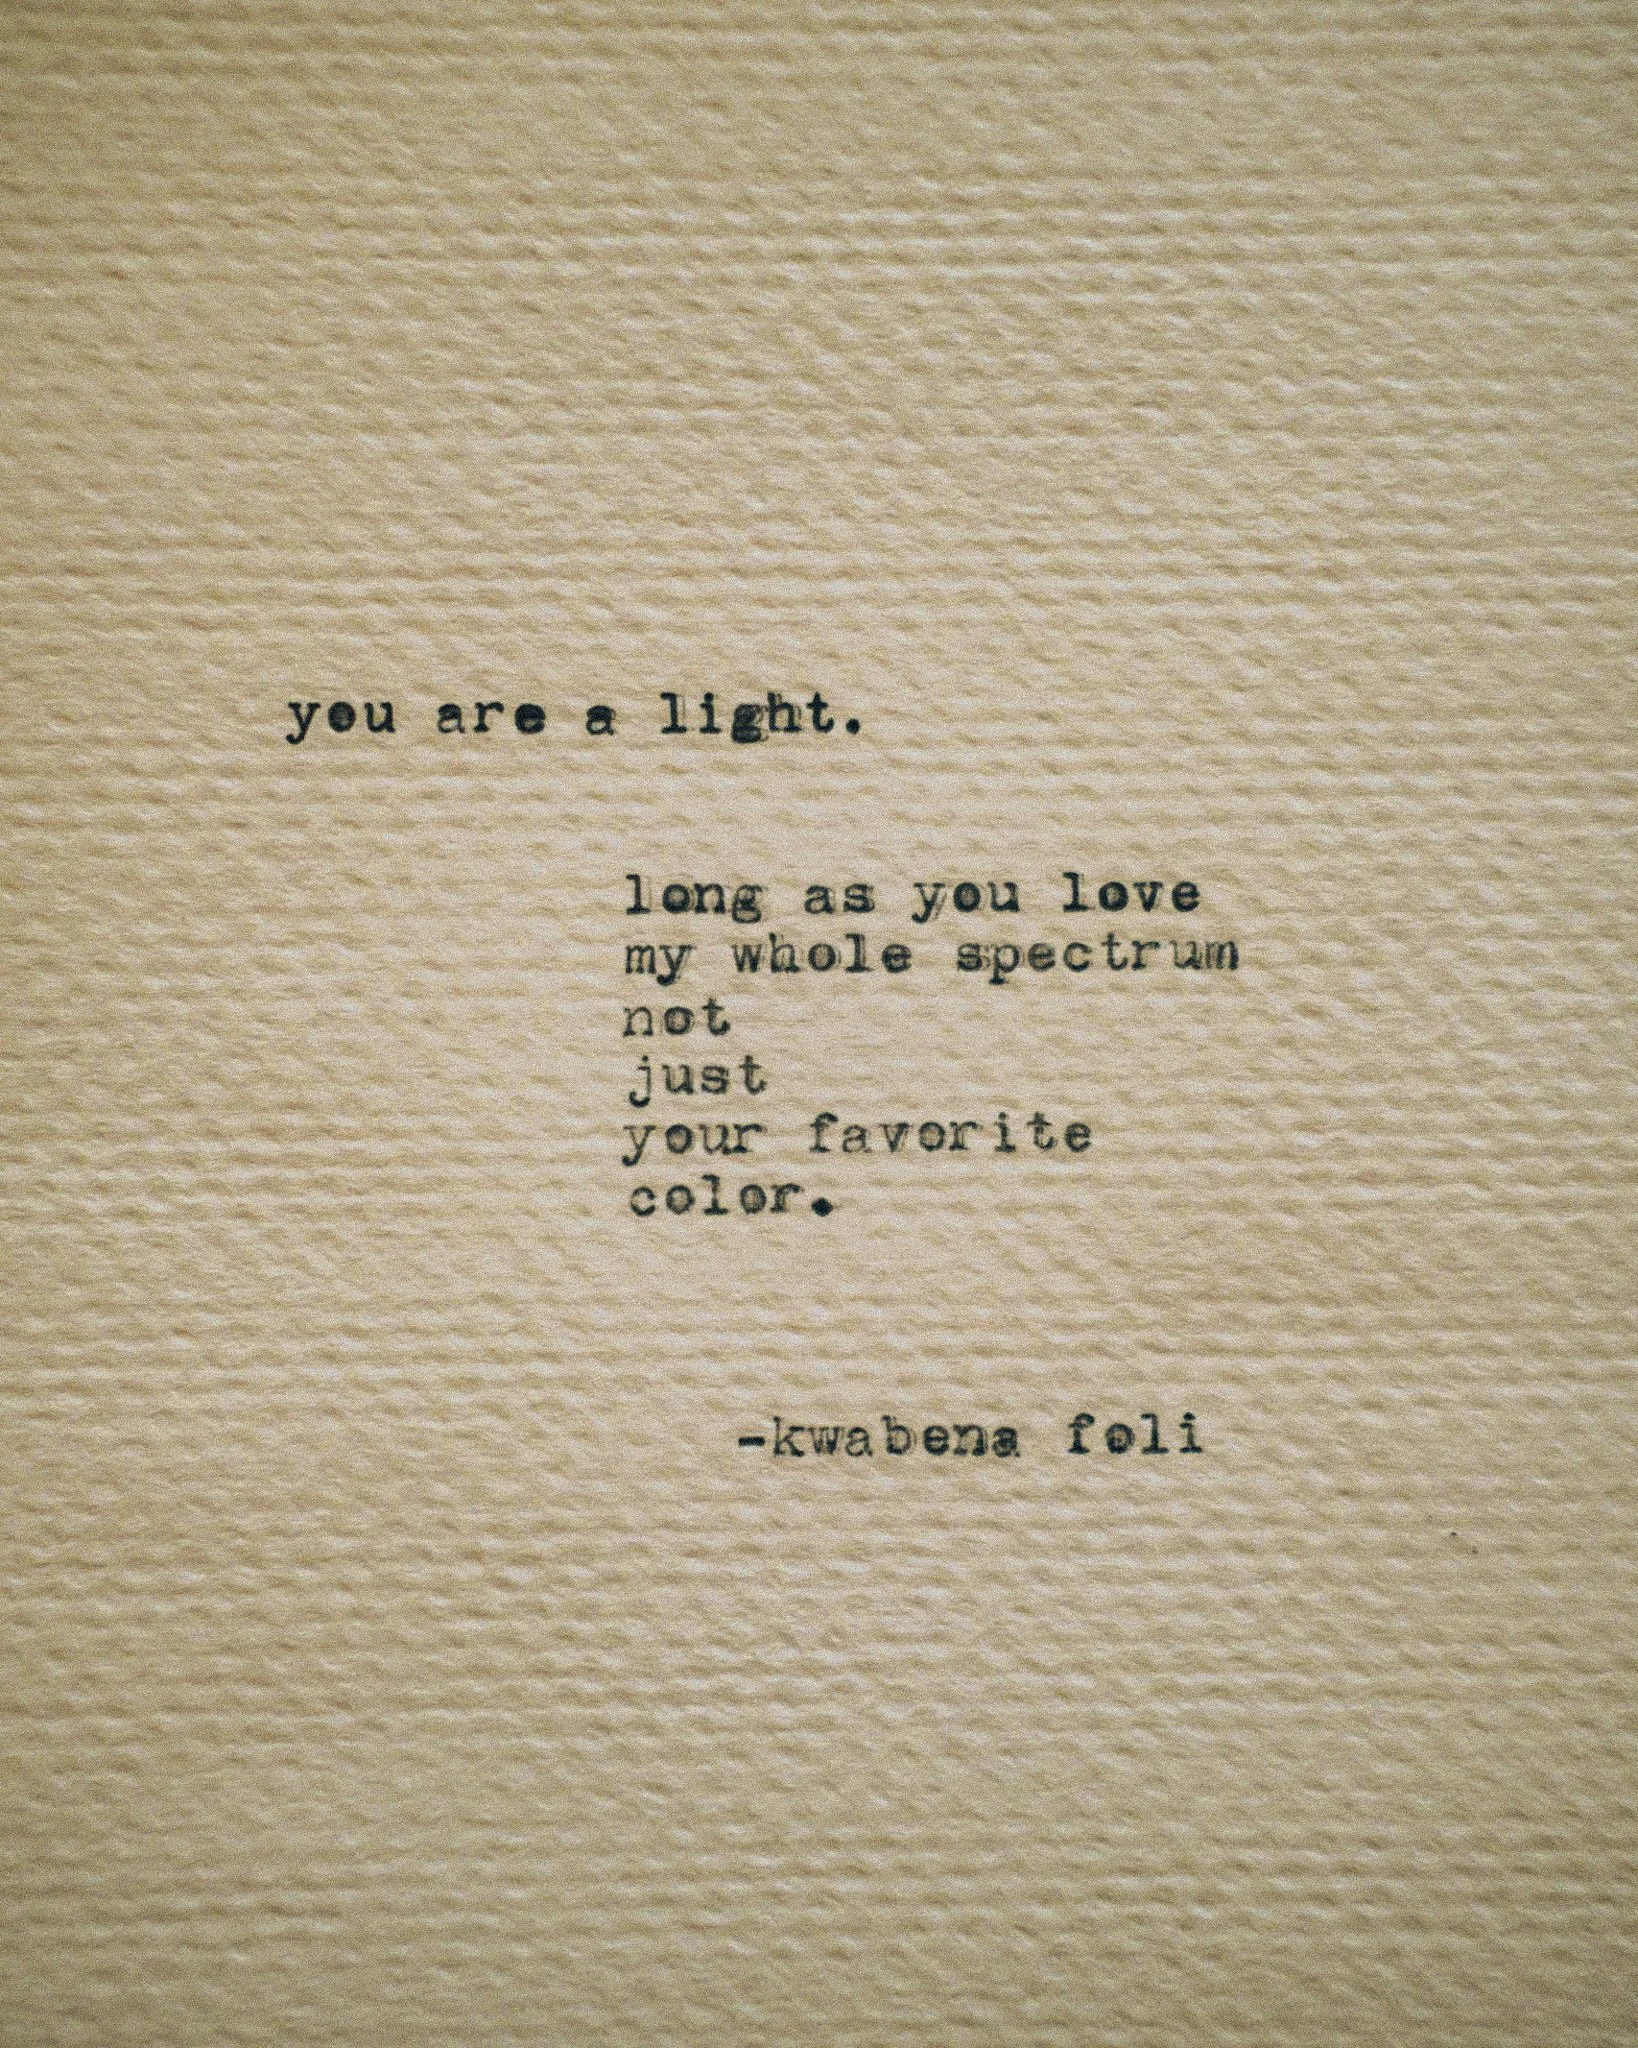 you are a light.
long as you love
my whole spectrum
not
just
your favorite
color.
-kwabena foli